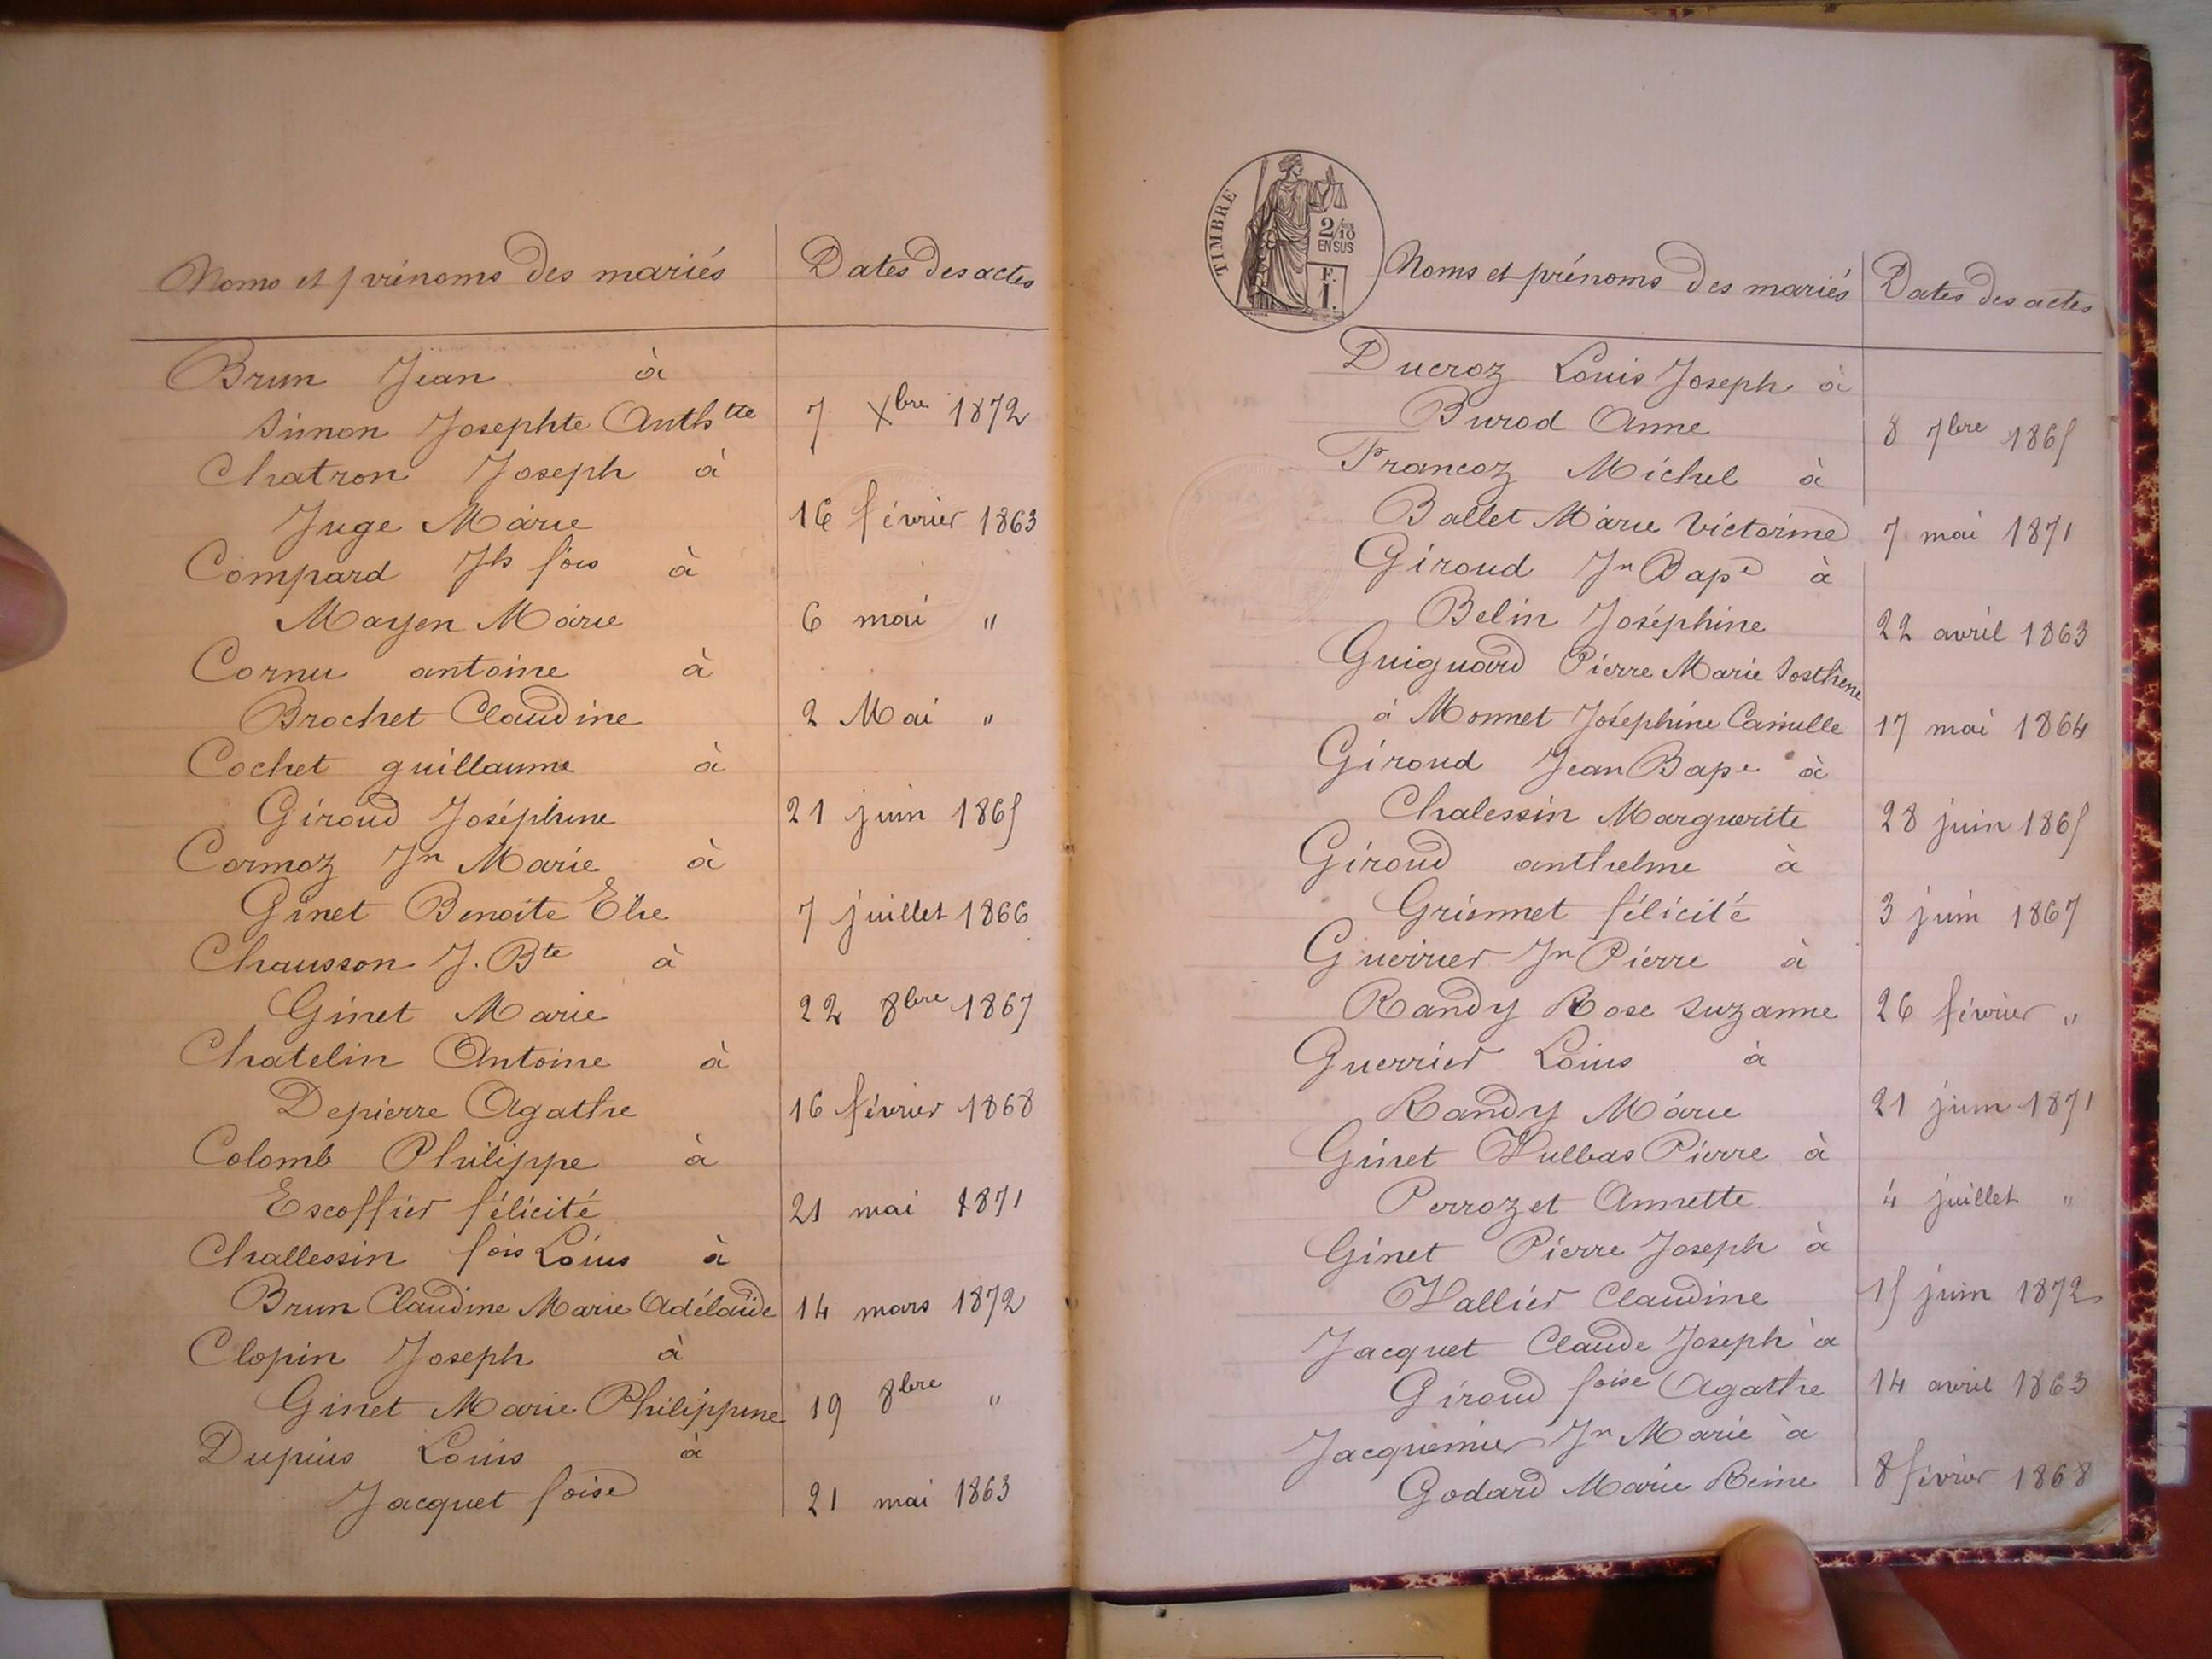 Noms et prénoms des mariés Dates des actes
Brun Jean à
Simon Josephte Anthtte 7 Xbre 1872
Chatron Joseph à
Juge Marie 16 février 1863
Compard Jh fois à
Mayen Marie 6 mai "
Cornu antoine à
Brochet Claudine 2 Mai "
Cochet guillaume à
Giroud Joséphine 21 juin 1865
Cormoz Jn Marie à
Ginet Benoite 7 juillet 1866
Chausson J. Bte à
Ginet Marie 22 8bre 1867
Chatelin Antoine à
Depierre Agathe 16 février 1868
Colomb Philippe à
Escoffier félicité 21 mai 1871
Challessin fois Louis à
Brun Claudine Marie Adélaïde 14 mars 1872
Clopin Joseph à
Ginet Marie Philippine 19 8bre "
Dupuis Louis à
Jacquet foise 21 mai 1863
TIMBRE
2/10
EN SUS
F.
1.
Noms et prénoms des mariés Dates des actes
Ducroz Louis Joseph à
Burod Anne 8 7bre 1865
Francoz Michel à
Ballet Marie Victorine 7 mai 1871
Giroud Jn Bape à
Belin Joséphine 22 avril 1863
Guignard Pierre Marie Sosthène
à Monnet Joséphine Camille 17 mai 1864
Giroud Jean Bape à
Chalessin Marguerite 28 juin 1865
Giroud anthelme à
Griennet félicité 3 juin 1867
Guerrier Jn Pierre à
Randy Rose Suzanne 26 février "
Guerrier Louis à
Randy Marie 21 juin 1871
Ginet Hulbas Pierre à
Perrozet Annette 4 juillet "
Ginet Pierre Joseph à
Vallier Claudine 15 juin 1872
Jacquet Claude Joseph à
Giroud foise Agathe 14 avril 1863
Jacquemier Jn Marie à
Godard Marie Reine 8 février 1868